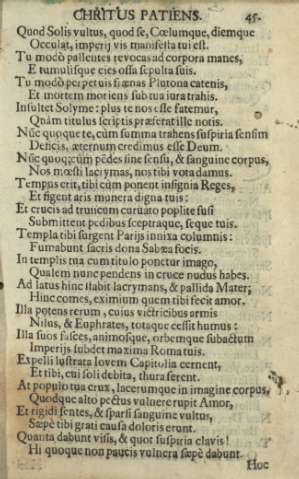 CHRITUS PATIENS. 45.
Quod Solis vultus, quod se, Cœlumque, diemque
Occulat, imperij vis manifesta tui est.
Tu modò pallentes revocas ad corpora manes,
E tumulisque cies ossa sepulta suis.
Tu modò perpetuis frænas Plutona catenis,
Et mortem moriens sub tua iura trahis.
Insultet Solyme: plus te nos esse fatemur,
Quàm titulus scriptis præferat ille notis.
Nũc quoque te, cùm summa trahens suspiria sensim
Deficis, æternum credimus esse Deum.
Nũc quoq; cùm pẽdes sine sensu, & sanguine corpus,
Nos mœsti lacrymas, nos tibi vota damus.
Tempus erit, tibi cùm ponent insignia Reges,
Et figent aris munera digna tuis:
Et crucis ad truncum curuato poplite fusi
Submittent pedibus sceptraque, seque tuis.
Templa tibi surgent Parijs innixa columnis:
Fumabunt sacris dona Sabæa focis.
In templis tua cum titulo ponetur imago,
Qualem nunc pendens in cruce nudus habes.
Ad latus hinc stabit lacrymans, & pallida Mater;
Hinc comes, eximium quem tibi fecit amor.
Illa potens rerum, cuius victricibus armis
Nilus, & Euphrates, totaque cessit humus:
Illa suos fasces, animosque, orbemque subactum
Imperijs subdet maxima Roma tuis.
Expelli lustrata Iovem Capitolia cernent,
Et tibi, cui soli debita, thura ferent.
At populo tua crux, lacerumque in imagine corpus,
Quodque alto pectus vulnere rupit Amor,
Et rigidi sentes, & sparsi sanguine vultus,
Sæpè tibi grati causa doloris erunt.
Quanta dabunt visis, & quot suspiria clavis!
Hi quoque non paucis vulnera sæpè dabunt.
Hoc